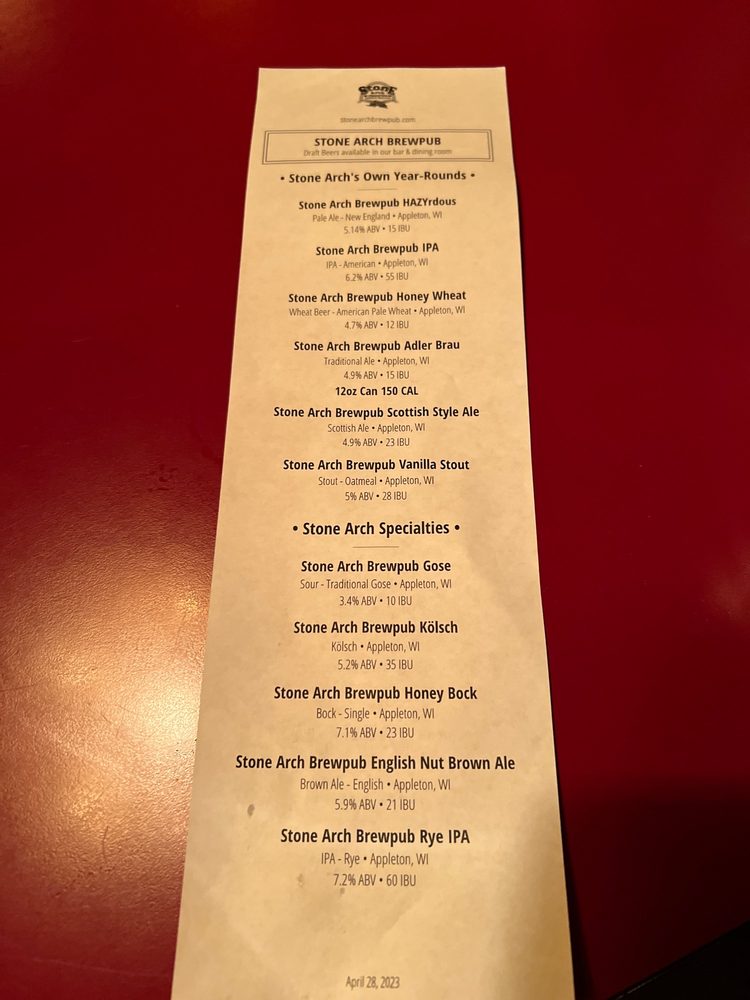 Stone
stonearchbrewpub.com
STONE ARCH BREWPUB
Draft Beers available in our bar & dining room
• Stone Arch's Own Year-Rounds •
Stone Arch Brewpub HAZYrdous
Pale Ale - New England • Appleton, WI
5.14% ABV • 15 IBU
Stone Arch Brewpub IPA
IPA - American • Appleton, WI
6.2% ABV • 55 IBU
Stone Arch Brewpub Honey Wheat
Wheat Beer - American Pale Wheat • Appleton, WI
4.7% ABV • 12 IBU
Stone Arch Brewpub Adler Brau
Traditional Ale • Appleton, WI
4.9% ABV • 15 IBU
12oz Can 150 CAL
Stone Arch Brewpub Scottish Style Ale
Scottish Ale • Appleton, WI
4.9% ABV • 23 IBU
Stone Arch Brewpub Vanilla Stout
Stout - Oatmeal • Appleton, WI
5% ABV • 28 IBU
• Stone Arch Specialties •
Stone Arch Brewpub Gose
Sour - Traditional Gose • Appleton, WI
3.4% ABV • 10 IBU
Stone Arch Brewpub Kölsch
Kölsch • Appleton, WI
5.2% ABV • 35 IBU
Stone Arch Brewpub Honey Bock
Bock - Single • Appleton, WI
7.1% ABV • 23 IBU
Stone Arch Brewpub English Nut Brown Ale
Brown Ale - English • Appleton, WI
5.9% ABV • 21 IBU
Stone Arch Brewpub Rye IPA
IPA - Rye • Appleton, WI
7.2% ABV • 60 IBU
April 28, 2023